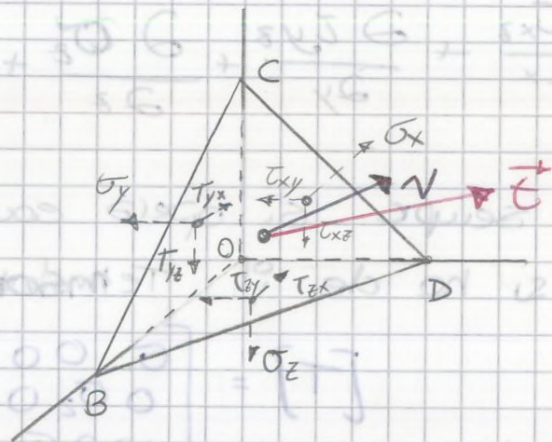 C
σx
σy
τyx
τxy
N
t
τyz
τxz
O
τzy
τzx
D
σz
B